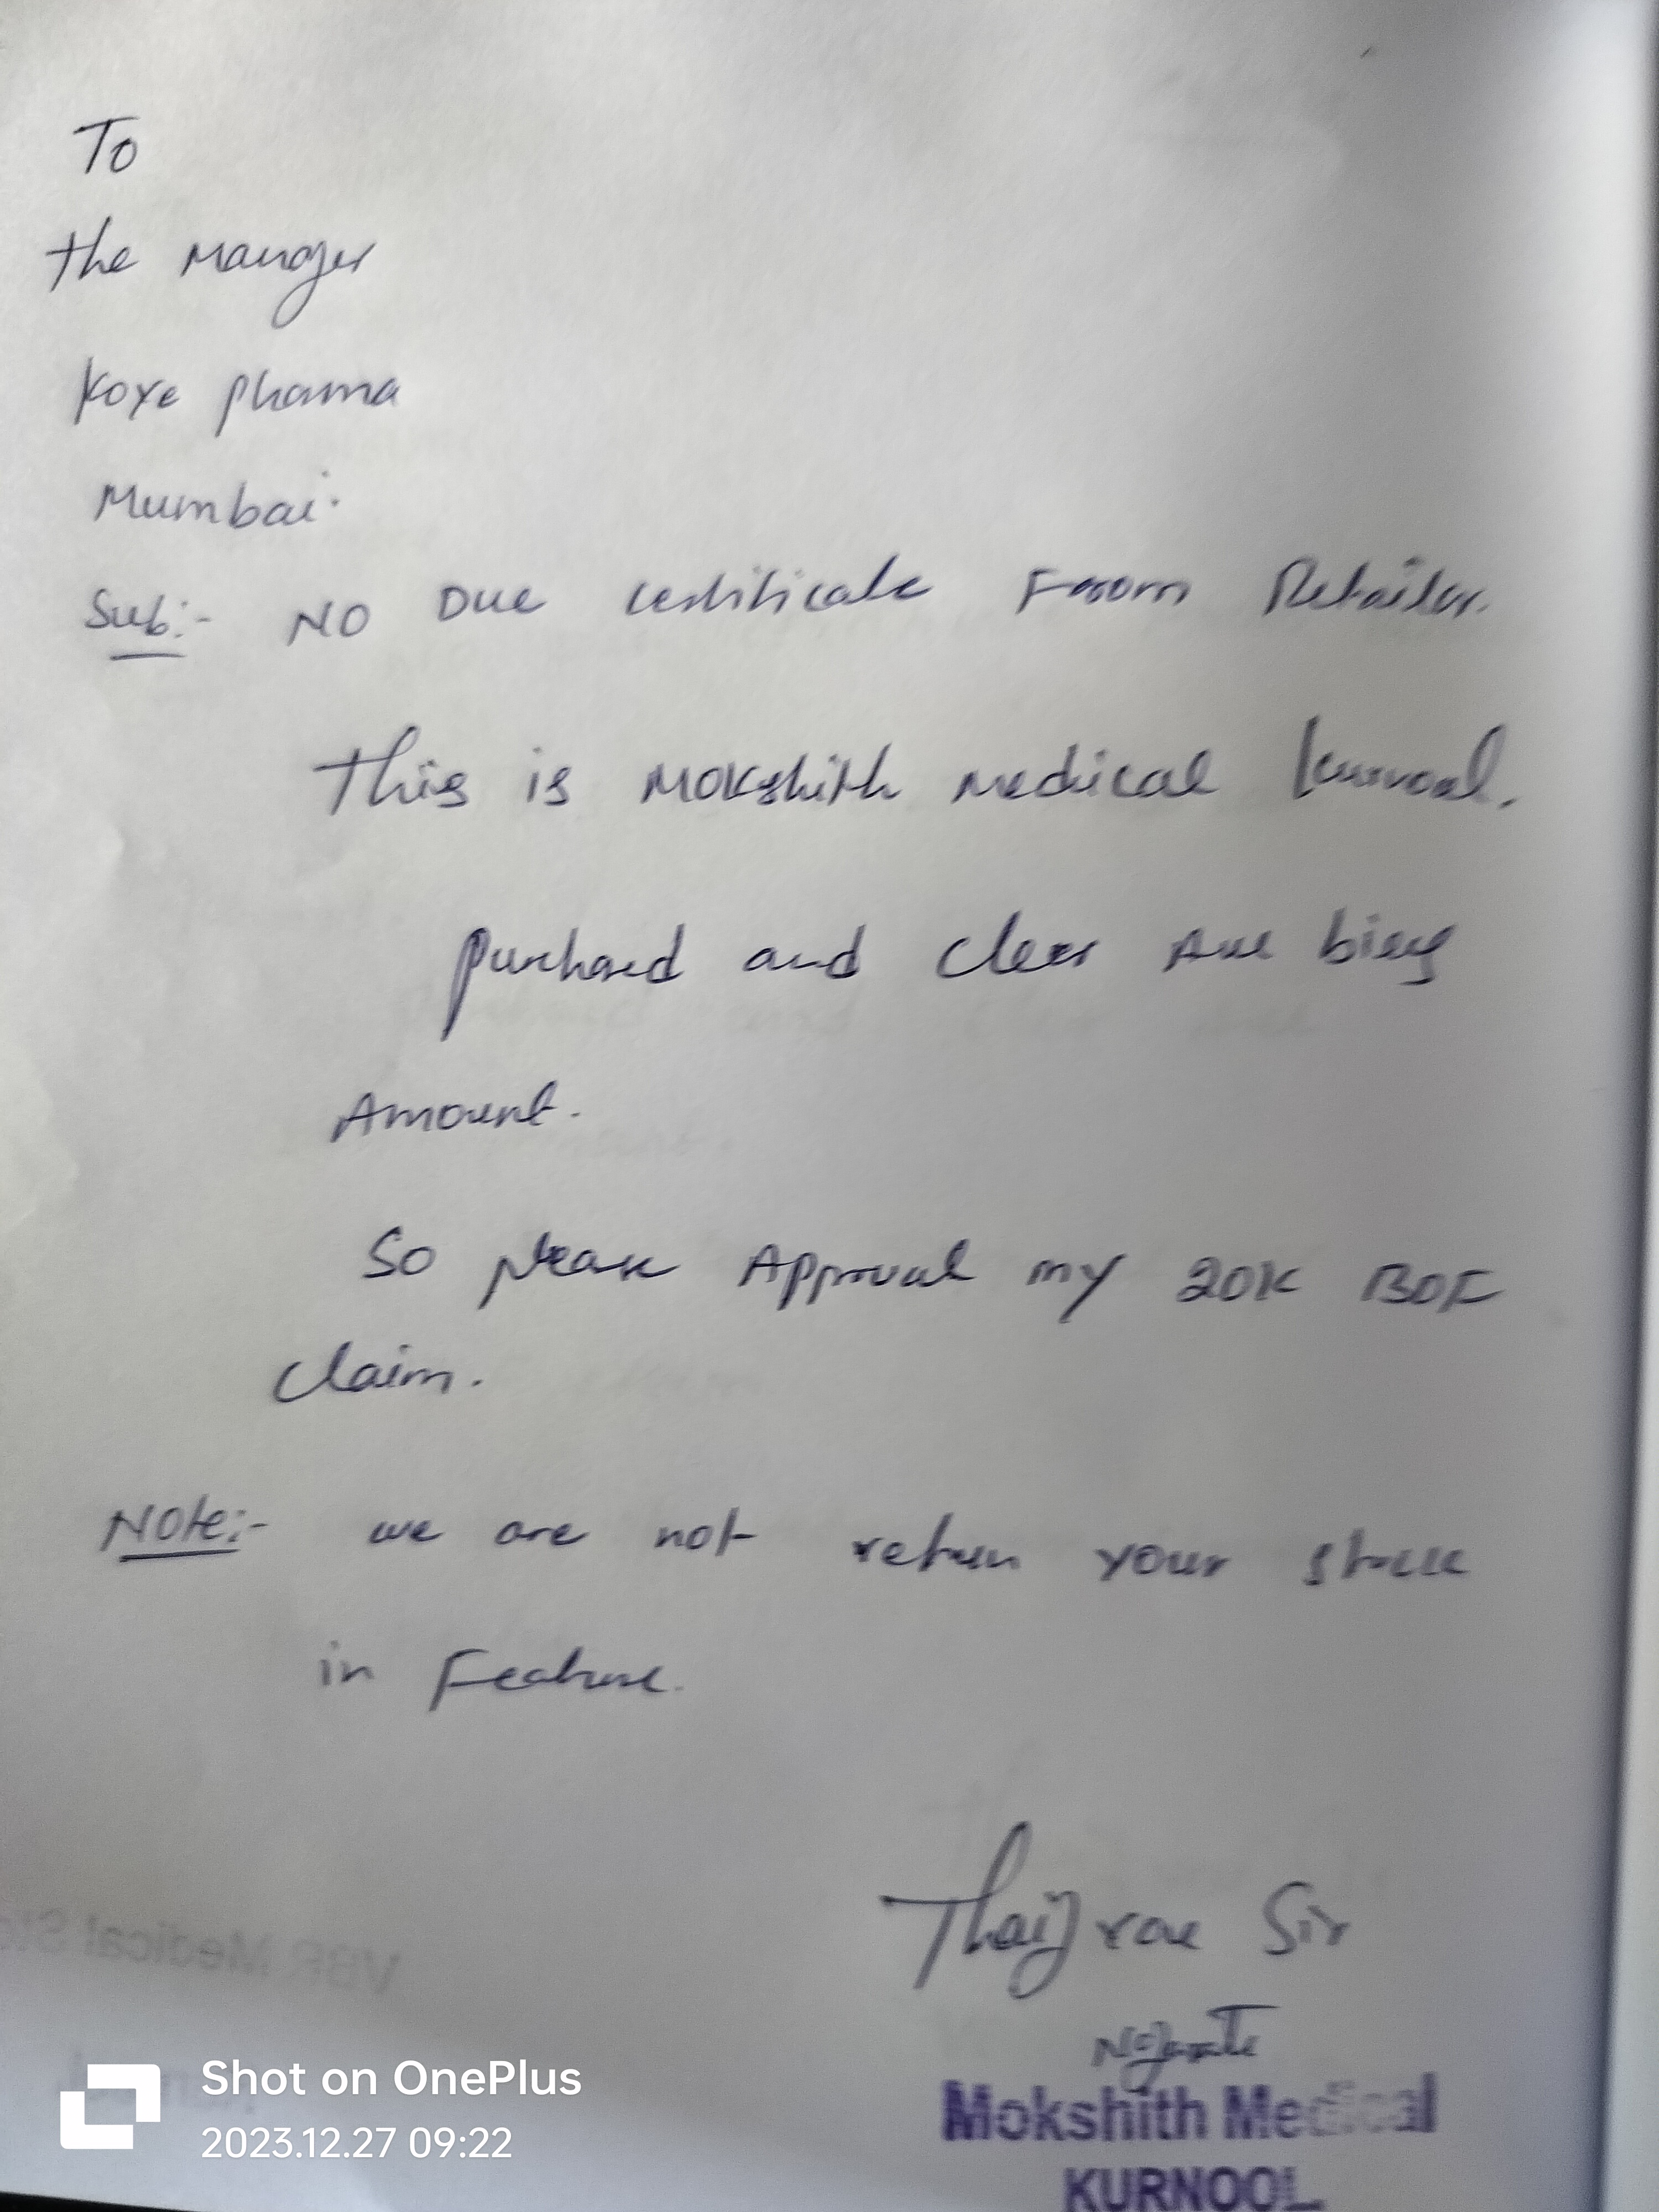 To
the Manager
Koye pharma
Mumbai.
Sub:- NO Due certificate From Retailer.
This is Mokshith Medical kurnool.
purchased and clear Aue
Amount.
So please Approval my 20K BOF
claim.
Note:- we are not return your stock
in Feature.
Sir
Mokshith Medical
KURNOOL
VBR Medical
Shot on OnePlus
2023.12.27 09:22